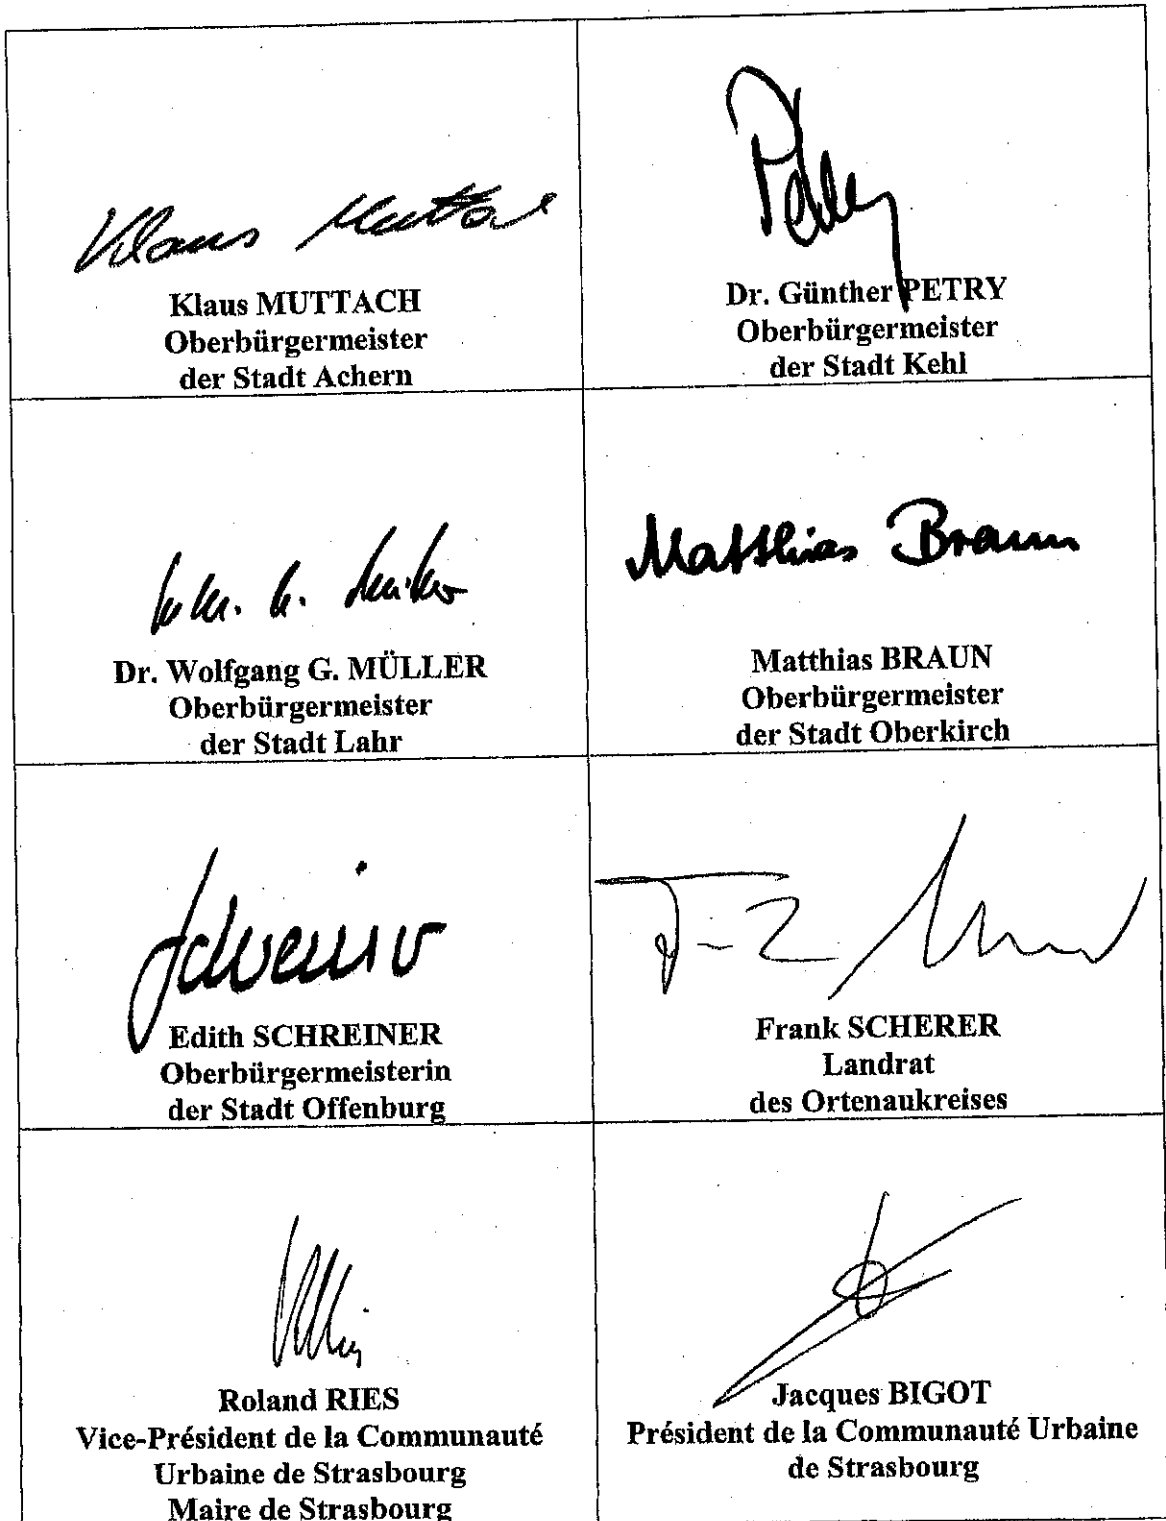 Klaus Muttach
Klaus MUTTACH
Oberbürgermeister
der Stadt Achern
Petry
Dr. Günther PETRY
Oberbürgermeister
der Stadt Kehl
Dr. Wolfgang G. MÜLLER
Oberbürgermeister
der Stadt Lahr
Matthias Braun
Matthias BRAUN
Oberbürgermeister
der Stadt Oberkirch
Schreiner
Edith SCHREINER
Oberbürgermeisterin
der Stadt Offenburg
Frank SCHERER
Landrat
des Ortenaukreises
Roland RIES
Vice-Président de la Communauté
Urbaine de Strasbourg
Maire de Strasbourg
Jacques BIGOT
Président de la Communauté Urbaine
de Strasbourg